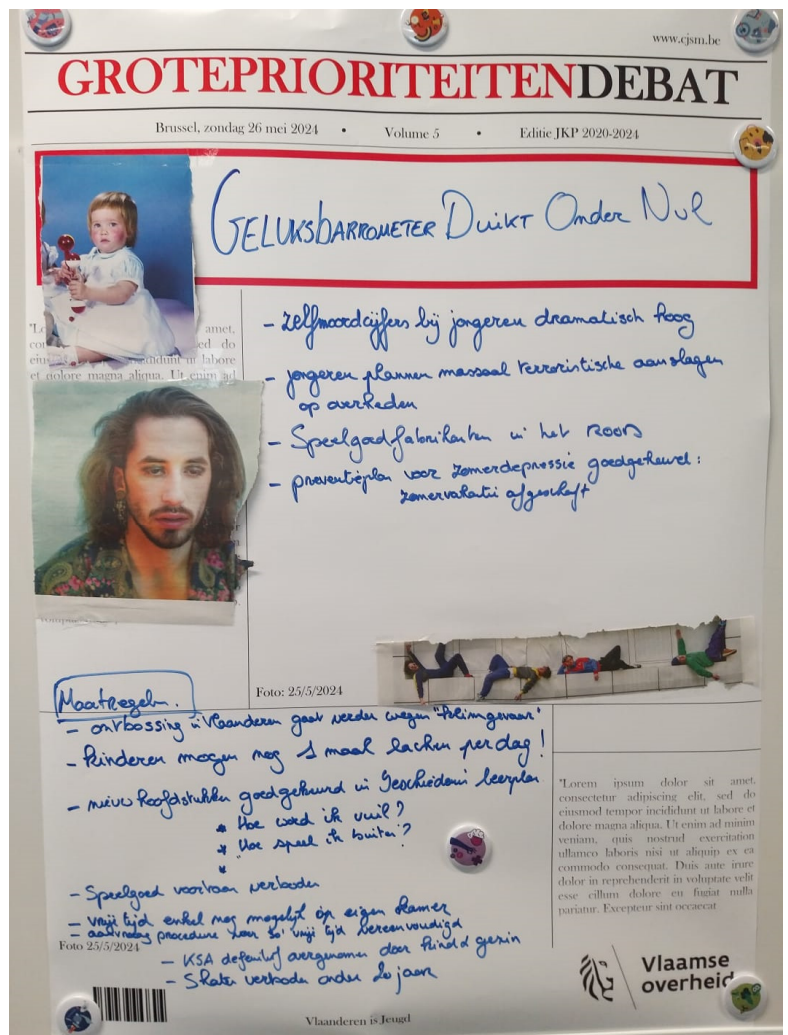 www.cjsm.be
GROTEPRIORITEITENDEBAT
Brussel, zondag 26 mei 2024 • Volume 5 • Editie JKP 2020-2024
GELUKSBARROMETER DUIKT Onder Nul
- zelfmoordcijfers bij jongeren dramatisch hoog
- jongeren plannen massaal terroristische aanslagen
op overheden
- Speelgoedfabrikanten in het ROOD
- preventieplan voor zomerdepressie goedgekeurd:
zomervakantie afgeschaft
"Lo amet,
ed do
eius didunt ut labore
et dolore magna aliqua. Ut enim ad
Foto: 25/5/2024
Maatregelen.
- ontbossing in Vlaanderen gaat verder wegen "klimgevaar"
- kinderen mogen nog 1 maal lachen per dag!
- nieuw hoofdstukken goedgekeurd in Geschiedenis leerplan
* Hoe word ik vuil?
* "Hoe speel ik buiten?
*
- Speelgoed voortaan verboden
- vrije tijd enkel nog mogelijk op eigen kamer
- aanvraag procedure voor 30' vrije tijd vereenvoudigd
Foto 25/5/2024
- KSA definitief overgenomen door Kind & gezin
- Skaten verboden onder 20 jaar
"Lorem ipsum dolor sit amet,
consectetur adipiscing elit, sed do
eiusmod tempor incididunt ut labore et
dolore magna aliqua. Ut enim ad minim
veniam, quis nostrud exercitation
ullamco laboris nisi ut aliquip ex ea
commodo consequat. Duis aute irure
dolor in reprehenderit in voluptate velit
esse cillum dolore eu fugiat nulla
pariatur. Excepteur sint occaecat
Vlaamse
overheid
Vlaanderen is Jeugd